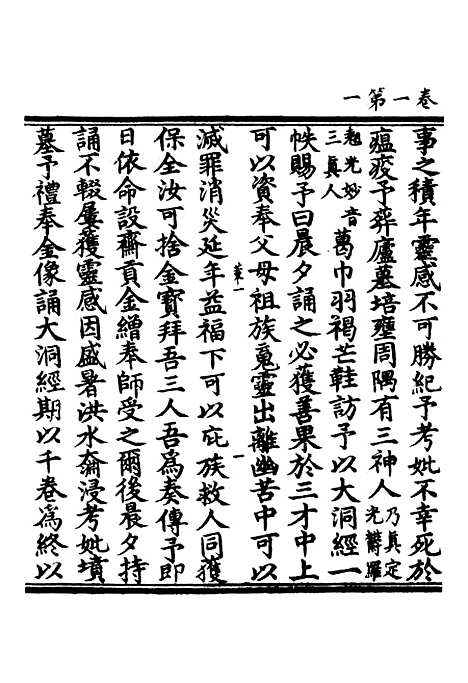 卷一第一
事之積年靈感不可勝紀予考妣不幸死於
瘟疫予葬廬墓培壅周隅有三神人乃真定光欝羅
翹光妙音三真人葛巾羽褐芒鞋訪予以大洞經一
帙賜予曰晨夕誦之必獲善果於三才中上
可以資奉父母祖族魂靈出離幽苦中可以
葉一 一
滅罪消災延年益福下可以庇族救人同獲
保全汝可捨金寶拜吾三人吾爲奏傳予即
日依命設齋貢金繒奉師受之爾後晨夕持
誦不輟屢獲靈感因盛暑洪水奫浸考妣墳
墓予禮奉金像誦大洞經期以千卷爲終以